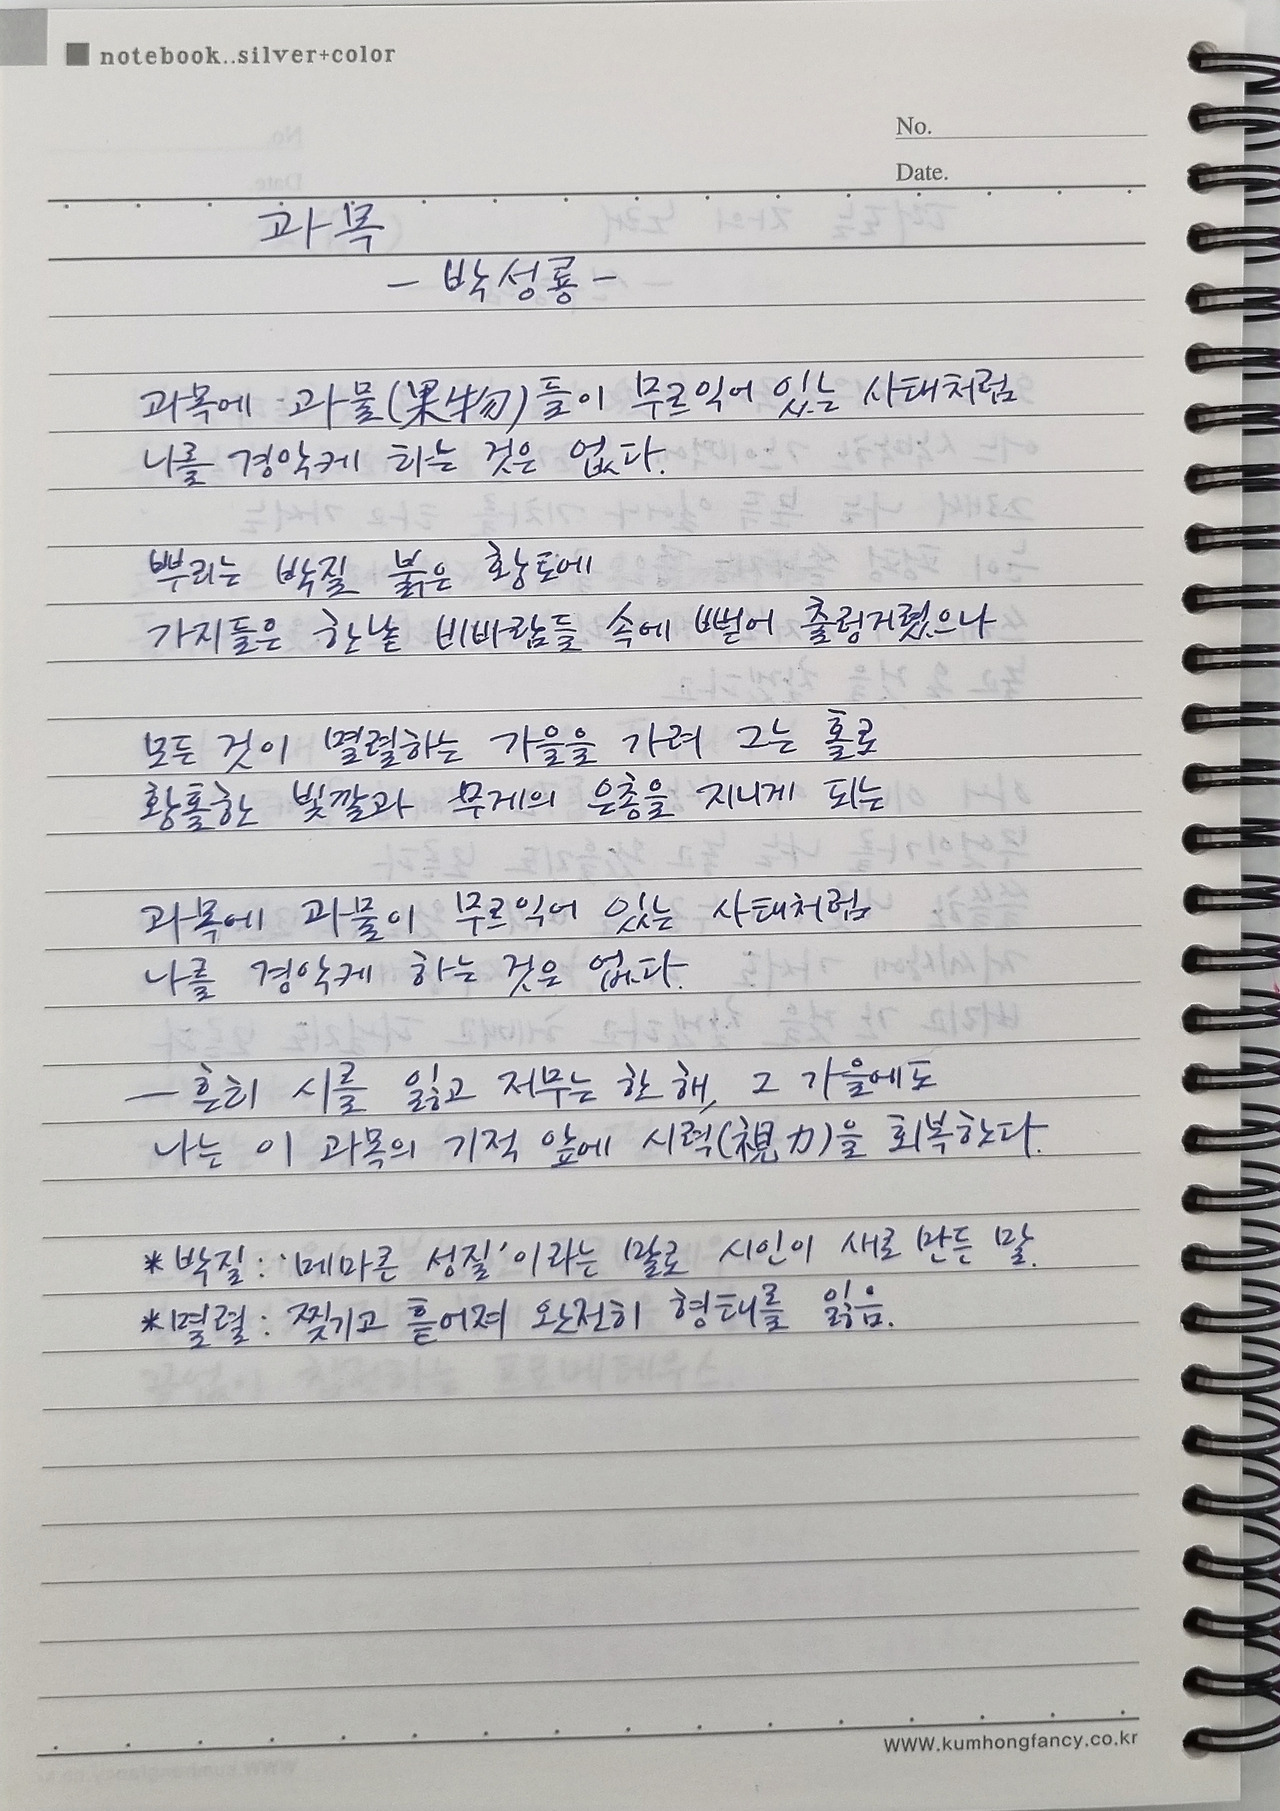 notebook..silver+color
No.
Date.
과목
- 박성룡 -
과목에 과물(果物)들이 무르익어 있는 사태처럼
나를 경악케 하는 것은 없다.
뿌리는 박질 붉은 황토에
가지들은 한낱 비바람들 속에 뻗어 출렁거렸으나
모든 것이 멸렬하는 가을을 가려 그는 홀로
황홀한 빛깔과 무게의 은총을 지니게 되는
과목에 과물이 무르익어 있는 사태처럼
나를 경악케 하는 것은 없다.
- 흔히 시를 잃고 저무는 한 해, 그 가을에도
나는 이 과목의 기적 앞에 시력(視力)을 회복한다.
*박질 : '메마른 성질'이라는 말로 시인이 새로 만든 말.
*멸렬 : 찢기고 흩어져 완전히 형태를 잃음.
www.kumhongfancy.co.kr